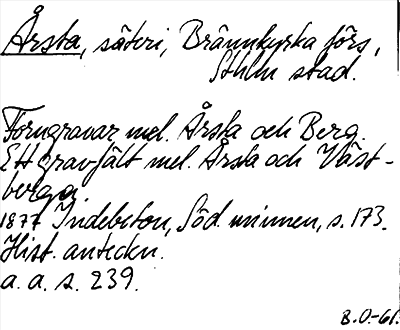 Årsta, säteri, Brännkyrka förs,
Sthlm stad.
Forngravar mel. Årsta och Berg.
Ett gravfält mel. Årsta och Väst-
berga.
1877 Indebetou, Söd. minnen, s. 173.
Hist. anteckn.
a. a. s. 239.
B.O-61.